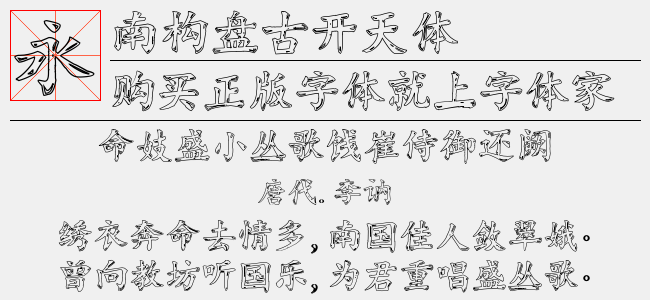 永
南构盘古开天体
购买正版字体就上字体家
命妓盛小丛歌饯崔侍御还阙
唐代。李讷
绣衣奔命去情多，南国佳人敛翠娥。
曾向教坊听国乐，为君重唱盛丛歌。